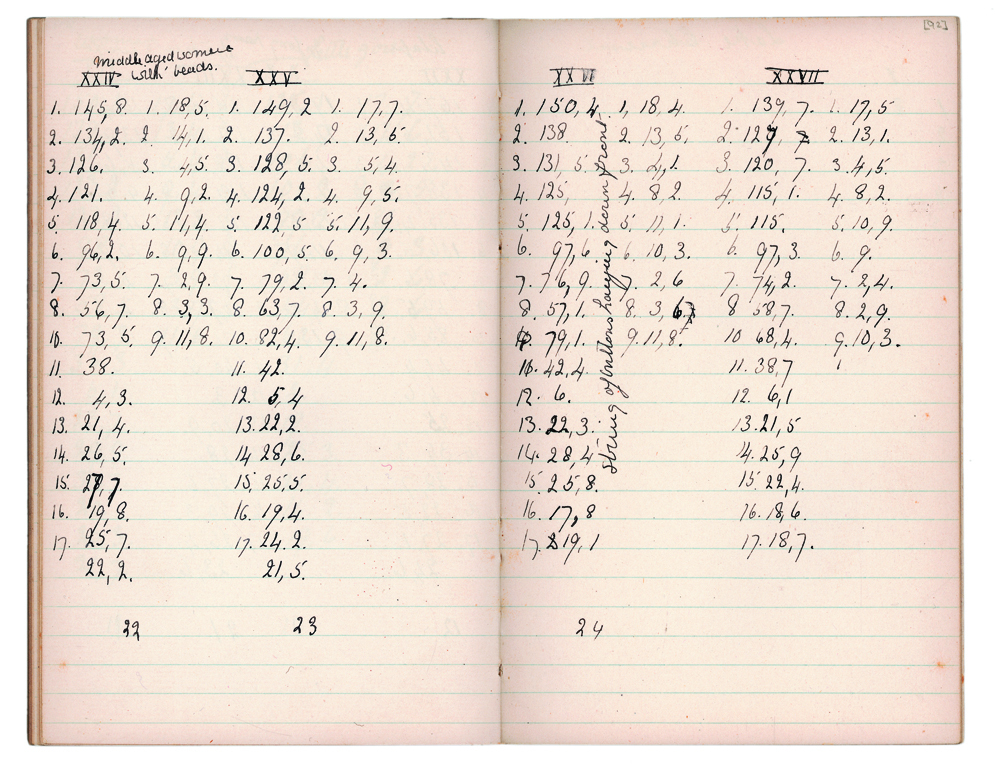 [92]
Middle aged women
with beads.
XXIV XXV
1. 145,8 1. 18,5. 1. 149,2 1. 17,7.
2. 134,2. 2 4,1. 2. 137. 2. 13,5
3. 126. 3. 4,5 3. 128,5. 3. 5,4.
4. 121. 4. 9,2. 4. 124,2. 4. 9,5.
5. 118,4 5. 11,4 5. 122,5 5. 11,9.
6. 96,2. 6. 9,9. 6. 100,5 6. 9,3.
7. 73,5. 7. 2,9. 7. 79,2 7. 4.
8. 56,7. 8. 3,3. 8. 63,7. 8. 3,9.
10. 73,5 9. 11,8. 10. 82,4. 9. 11,8.
11. 38. 11. 42.
12. 4,3. 12. 5,4
13. 21,4. 13. 22,2.
14. 26,5. 14 28,6.
15. 27,7. 15. 25,5.
16. 19,8. 16. 19,4.
17. 25,7. 17. 24.2.
22,2. 21,5.
22 23
XXVI XXVII
1. 150,4. 1, 18,4. 1. 139,7. 1. 17,5
2. 138 2. 13,5, 2. 127, 7 2. 13,1.
3. 131,5 3. 4,1. 3. 120,7. 3. 4,5.
4. 125, 4. 8,2. 4. 115,1. 4. 8,2.
5. 125,1. 5. 11,1. 5. 115. 5. 10,9.
6. 97,6 6. 10,3. 6. 97,3. 6. 9.
7. 76,9. 7. 2,6 7. 74,2 7. 2,4.
8. 57,1. 8. 3,6 8 58,7. 8. 2,9.
79,1. 9. 11,8. 10 68,4. 9. 10,3.
42,4. 11. 38,7
12. 6. 12. 6,1
13. 22,3. 13. 21,5
14. 28,4 4. 25,9
15. 25,8. 15. 22,4.
16. 17,8 16. 18,6.
17. 19,1 17. 18,7.
String of buttons hanging down front
24